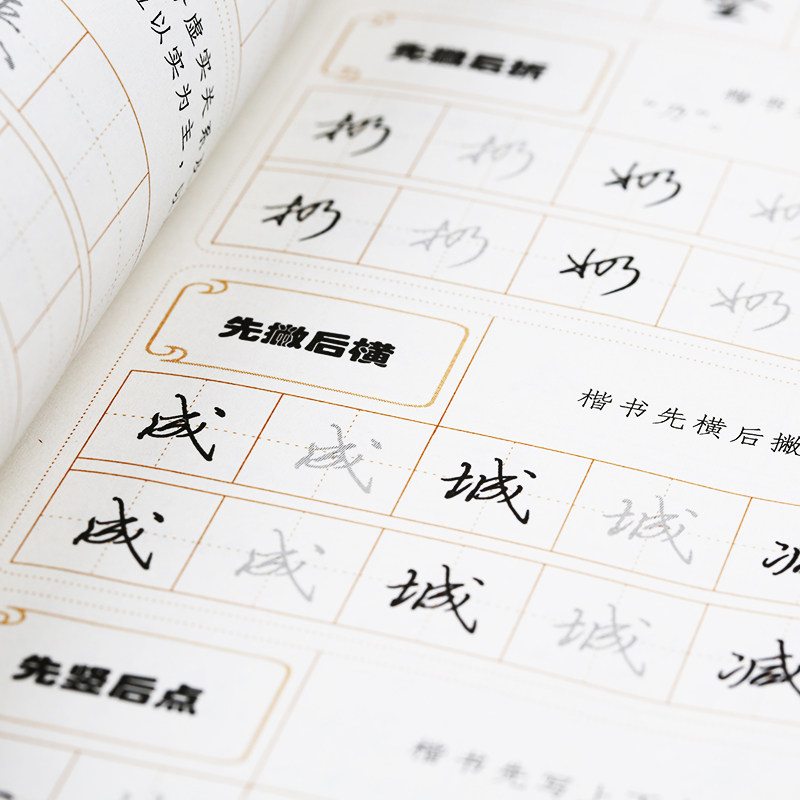 虚实关系
以实为主，
先撇后折
楷书
“乃”
扔 扔 奶
扔 扔 奶 奶
先撇后横
楷书先横后撇
成 成 城 城 减
成 成 城 城 减
先竖后点
楷书先写上